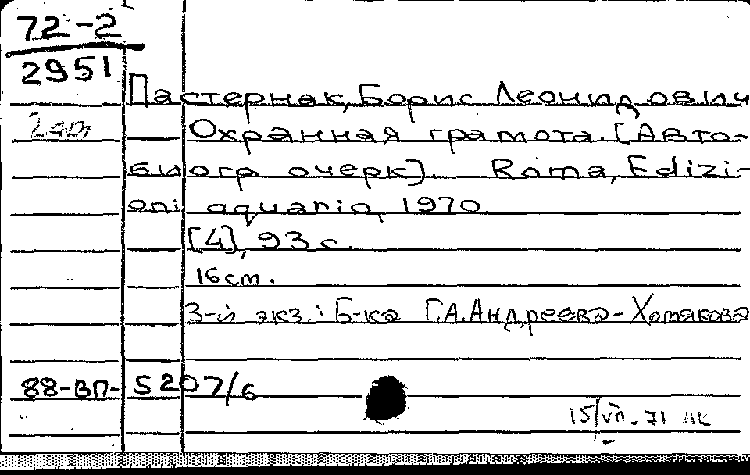 72-2
2951
Пастернак, Борис Леонидович
Охранная грамота. [Авто-
биогр очерк]. Roma, Edizi-
oni aquario, 1970.
[4], 93 с.
16 cm.
3-й экз.: Б-ка Г.А. Андреева-Хомякова
88-ВП- 5207/6
15/VII-71